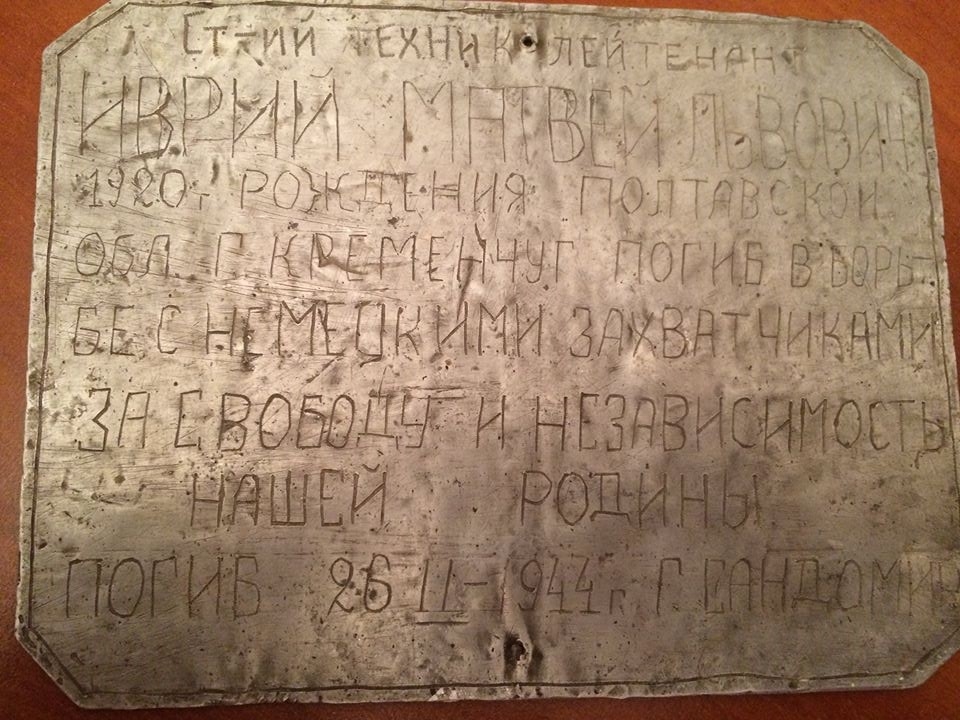 СТ-ИЙ ТЕХНИК ЛЕЙТЕНАНТ
ИВРИЙ МАТВЕЙ ЛЬВОВИЧ
1920г РОЖДЕНИЯ ПОЛТАВСКОЙ
ОБЛ. Г. КРЕМЕНЧУГ ПОГИБ В БОРЬ-
БЕ С НЕМЕЦКИМИ ЗАХВАТЧИКАМИ
ЗА СВОБОДУ И НЕЗАВИСИМОСТЬ
НАШЕЙ РОДИНЫ
ПОГИБ 26 II-1944г. Г САНДОМИР